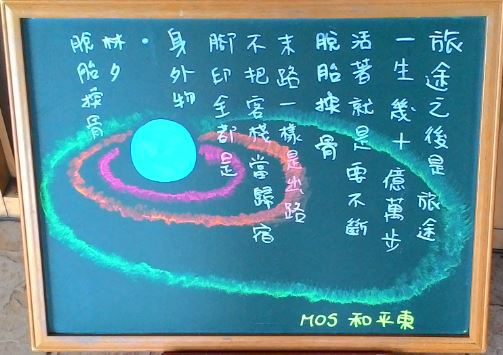 旅途之後是旅途
一生幾十億萬步
活著就是要不斷
脫胎換骨
末路一樣是出路
不把客棧當歸宿
腳印全都是
身外物
·林夕
脫胎換骨
MOS 和平東